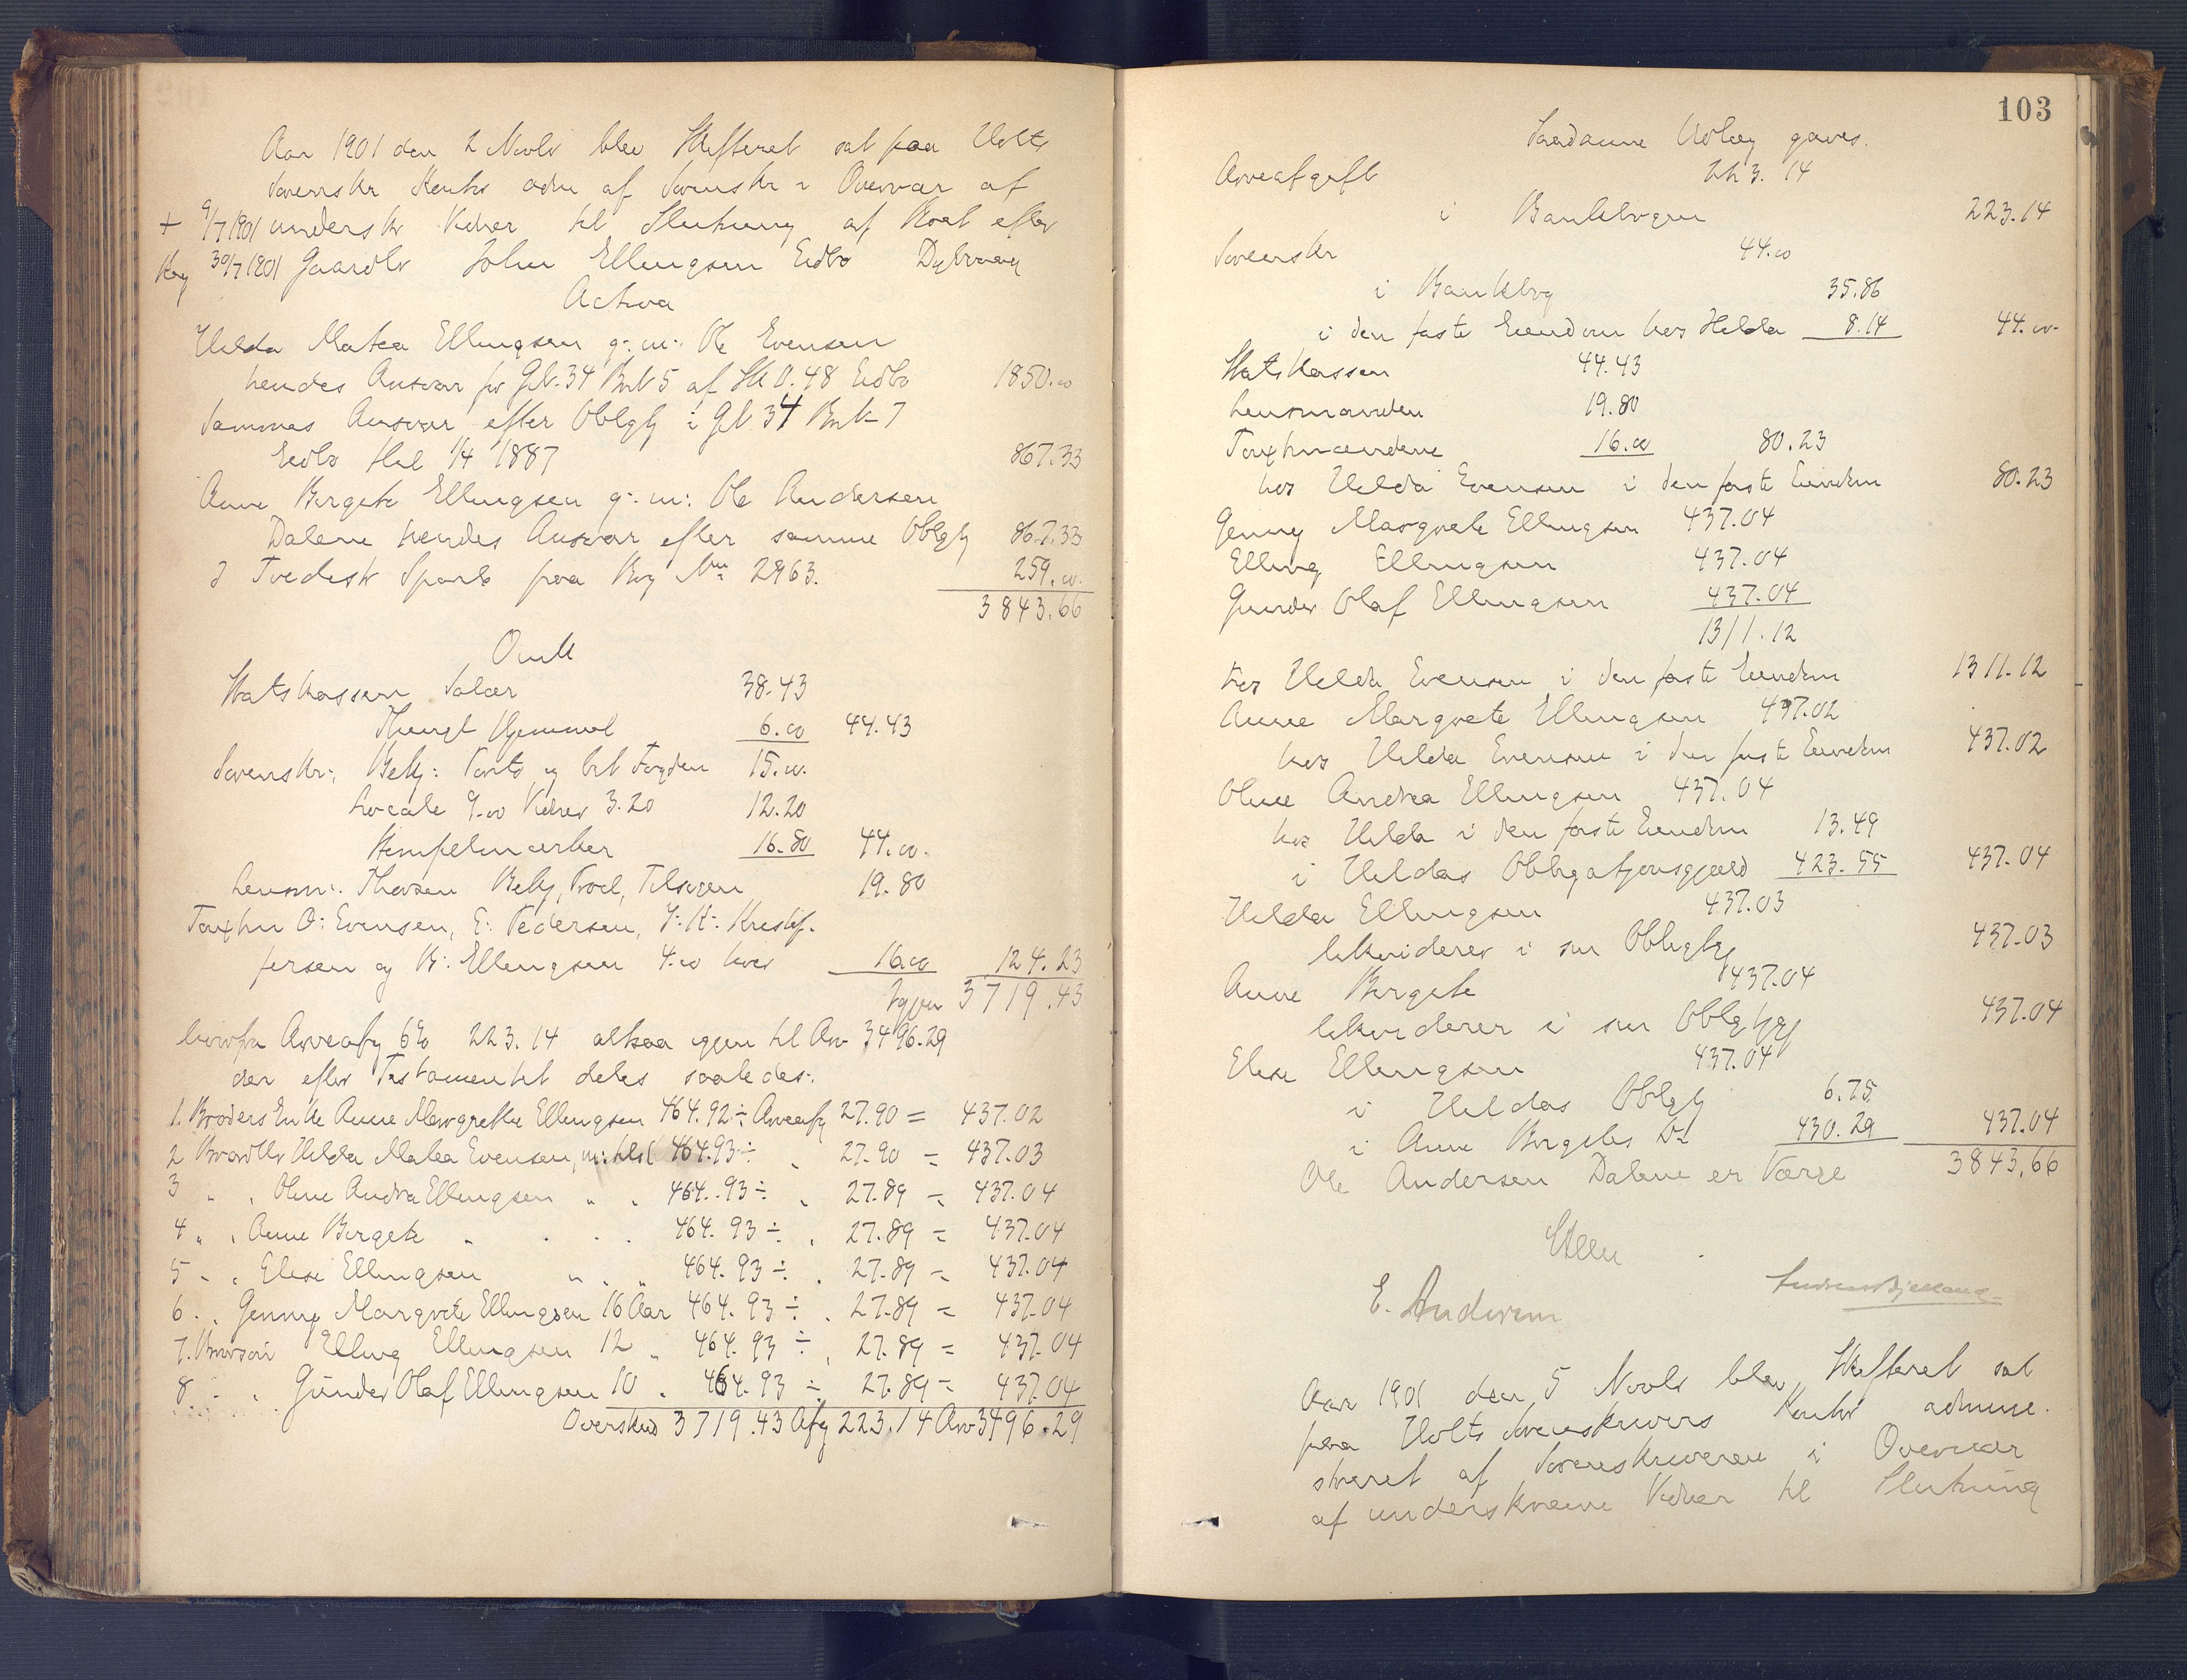 Aar 1901 den 2 Novbr blev Skifteret sat paa Holts
Sorenskr Kontor adm af Sorenskr i Overvær af
+ 9/7 1901 underskr Vidner til Slutning af Boet efter
Reg 30/7 1901 Gaardbr John Ellingsen Eidbo Dybvaag
Activa
Helda Matea Ellingsen g: m: Ole Evensen
hendes Ansvar for Gb. 34 Bnt 5 af Sk 0.48 Eidbo 1850.00
Sammes Ansvar efter Oblgtj i Gb 34 Bnt 7
Eidbo thl 1/4 1887 867.33
Anne Birgete Ellingsen g: m: Ole Andersen
Dalene hendes Ansvar efter samme Oblgtj 867.33
I Tvedestr Sparb paa Bog No 2963. 259.00
3843.66
Omk
Statskassen Salær 38.43
Thingl Hjemmel 6.00 44.43
Sorenskr: Bekj: Porto og til Fogden 15.00
Locale 9.00 Vidner 3.20 12.20
Stempelmærker 16.80 44.00.
Lensm: Thorsen Bekj, Procl, Tilsyn 19.80
Taxtm O: Evensen, E: Pedersen, J: K: Kristof-
fersen og B: Ellingsen 4.00 hver 16.00 124.23
Igjen 3719.43
hvorfra Arveafg 6% 223.14 altsaa igjen til Arv 3496.29
der efter Testamentet deles saaledes:
1. Broders Enke Anne Margrethe Ellingsen 464.92 ÷ Arveafg 27.90 = 437.02
2 Brordtr Helda Matea Evensen, 464.93 ÷ " 27.90 = 437.03
3 " " Oline Andrea Ellingsen " " 464.93 ÷ " 27.89 = 437.04
4 " " Anne Birgete " " " 464.93 ÷ " 27.89 = 437.04
5 " " Elise Ellingsen " " " 464.93 ÷ " 27.89 = 437.04
6 " " Genny Margrete Ellingsen 16 Aar 464.93 ÷ " 27.89 = 437.04
7. Brorsøn Elling Ellingsen 12 " 464.93 ÷ " 27.89 = 437.04
8 " " Gunder Olaf Ellingsen 10 " 464.93 ÷ 27.89 = 437.04
Overskud 3719.43 Afg 223.14 Arv 3496.29
103
Saadanne Udlæg gaves.
Arveafgift 223.14
i Bankbogen 223.14
Sorenskr 44.00
i Bankbog 35.86
i den faste Eiendom hos Helda 8.14 44.00
Statskassen 44.43
Lensmanden 19.80
Taxtmændene 16.00 80.23
hos Helda Evensen i den faste Eiendm 80.23
Genny Margrete Ellingsen 437.04
Elling Ellingsen 437.04
Gunder Olaf Ellingsen 437.04
1311.12
hos Helda Evensen i den faste Eiendm 1311.12
Anne Margrete Ellingsen 437.02
hos Helda Evensen i den faste Eiendm 437.02
Oline Andrea Ellingsen 437.04
hos Helda i den faste Eiendm 13.49
i Heldas Obligationsgjæld 423.55 437.04
Helda Ellingsen 437.03
likviderer i sin Obligtgj 437.03
Anne Birgete 437.04
likviderer i sin Oblgtgj 437.04
Elise Ellingsen 437.04
i Heldas Oblgtj 6.75
i Anne Birgetes Do 430.29 437.04
3843.66
Ole Andersen Dalene er Værge
E. Andersen
Aar 1901 den 5 Novbr blev Skifteret sat
paa Holts Sorenskrivers Kontor admini-
streret af Sorenskriveren i Overvær
af underskrevne Vidner til Slutning